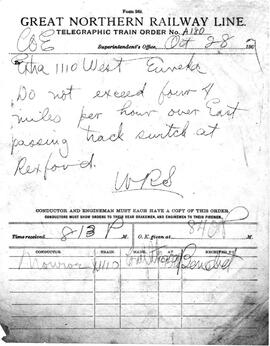 Form 560.
GREAT NORTHERN RAILWAY LINE.
TELEGRAPHIC TRAIN ORDER No. A180
Superintendent's Office, Oct 28 190
C&E
Extra 1110 West Eureka
Do not exceed four 4
miles per hour over East
passing track switch at
Rexford.
WRS
CONDUCTOR AND ENGINEMAN MUST EACH HAVE A COPY OF THIS ORDER.
CONDUCTORS MUST SHOW ORDERS TO THEIR REAR BRAKEMEN, AND ENGINEMEN TO THEIR FIREMEN.
Time received 813 P M O. K. given at 840 P M
CONDUCTOR TRAIN RECEIVED BY
Monroe 1110